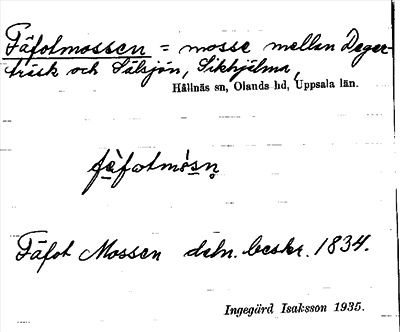 Fäfotmossen = mosse mellan Dager-
träsk och Sälsjön, Sikhjälma,
Hållnäs sn, Olands hd, Uppsala län.
fàfotmósn̥
Fäfot Mossen deln. beskr. 1834.
Ingegärd Isaksson 1935.